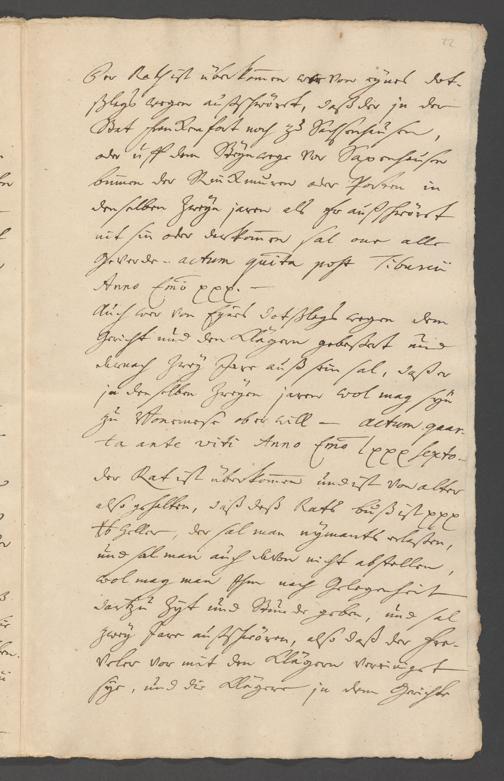 22
Der Rath ist überkomen wer von eynes dot-
ßlags wegen außschwöret, daß der in der
Stat Franckenfort noch zu Sachsenhausen,
oder uff dem Steynwege vor Saxenhausen
binnen der Ruckmuren oder Porten in
denselben zweyn jaren als Er außschwöret
nit sin oder darkommen sal one alle
Geverde – actum quinta post Tiburcii
Anno Cmo xxx. –
Auch wer von Eynes dotßlags wegen dem
Gericht und den Klägern gebessert und
dernach zwey Jare auß sein sal, daß er
in denselben zweyen jaren wol mag syn
zu Bonemese ob er will – actum quar-
ta ante viti Anno Cmo lxxx sexto –
der Rat ist überkommen und ist von alter
also gehalten, daß deß Raths buß ist xxx
lb Heller, der sal man nymants erlassen,
und sal man auch davon nicht abstellen,
wol mag man Ihm nach Gelegenheit
dartzu Zyt und Stunde geben, und sal
zwey Jare außschwören, also daß der Fre-
veler vor mit den Klägern vereiniget
sye, und die Klägere in dem Gerichte